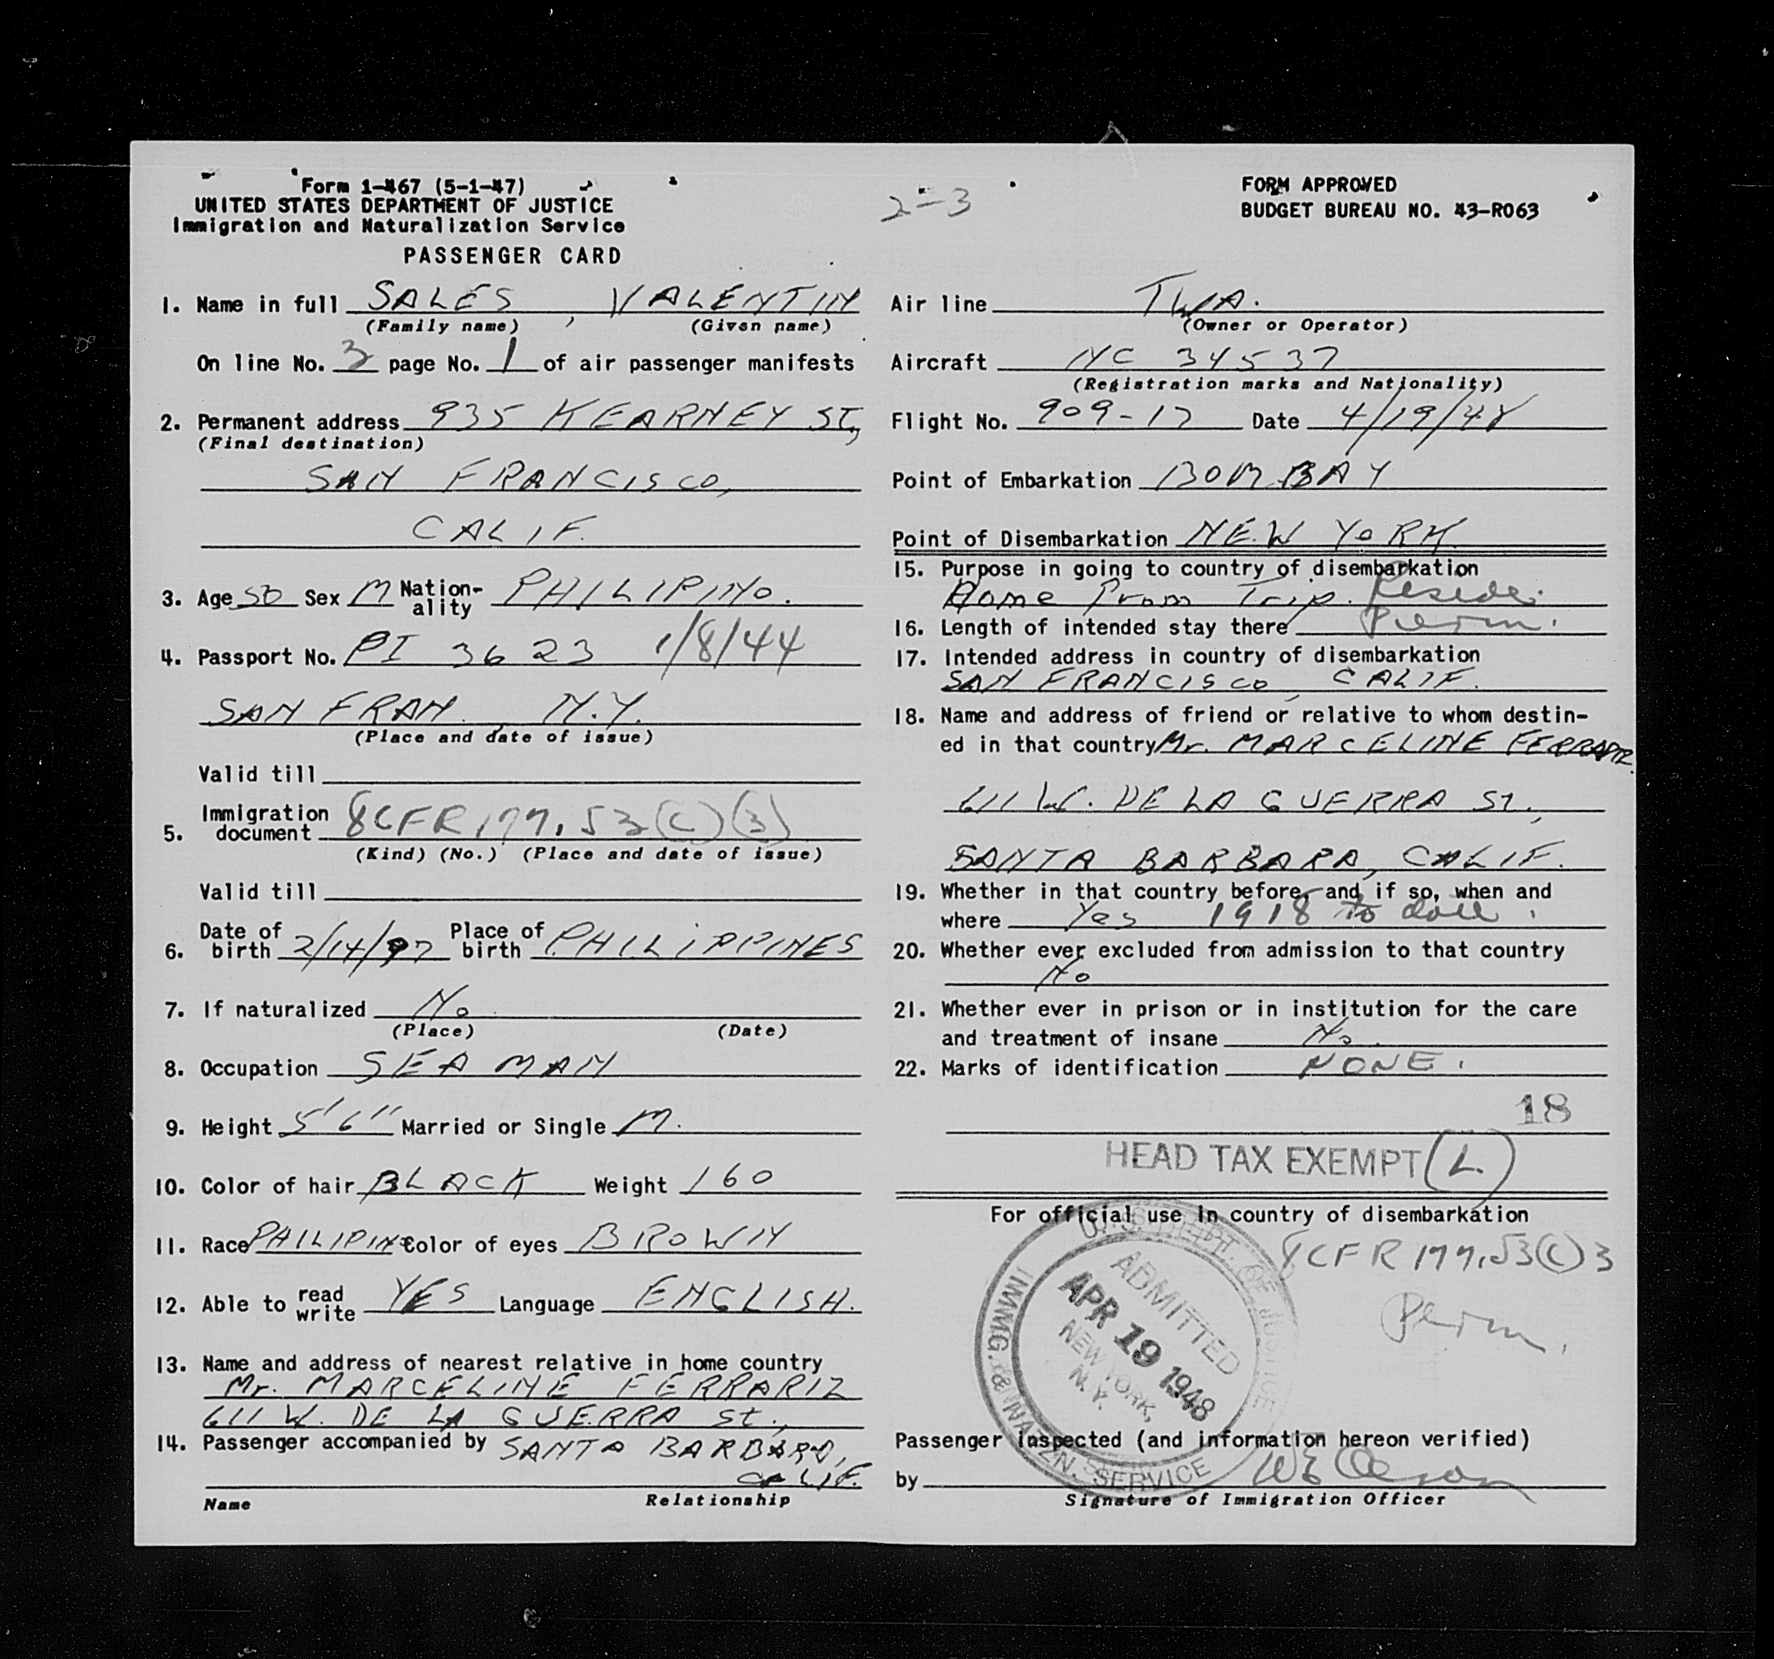 Form I-467 (5-1-47)
UNITED STATES DEPARTMENT OF JUSTICE
Immigration and Naturalization Service
PASSENGER CARD
2-3
FORM APPROVED
BUDGET BUREAU NO. 43-R063
1. Name in full SALES, VALENTIN
(Family name) (Given name)
On line No. 3 page No. 1 of air passenger manifests
2. Permanent address 935 KEARNEY ST,
(Final destination)
SAN FRANCISCO,
CALIF.
3. Age 50 Sex M Nation-ality PHILIPINO.
4. Passport No. PI 3623 1/8/44
SAN FRAN. N.Y.
(Place and date of issue)
Valid till
5. Immigration document 8CFR 177.53(C)(3)
(Kind) (No.) (Place and date of issue)
Valid till
6. Date of birth 2/14/97 Place of birth PHILIPPINES
7. If naturalized No
(Place) (Date)
8. Occupation SEAMAN
9. Height 5'6" Married or Single M.
10. Color of hair BLACK Weight 160
11. Race PHILIPINE Color of eyes BROWN
12. Able to read write YES Language ENGLISH.
13. Name and address of nearest relative in home country
Mr. MARCELINE FERRARIZ
611 W. DE LA GUERRA St.,
14. Passenger accompanied by SANTA BARBARA,
CALIF.
Name Relationship
Air line TWA.
(Owner or Operator)
Aircraft NC 34537
(Registration marks and Nationality)
Flight No. 909-17 Date 4/19/48
Point of Embarkation BOMBAY
Point of Disembarkation NEW YORK
15. Purpose in going to country of disembarkation
Home From Trip. Reside.
16. Length of intended stay there Perm.
17. Intended address in country of disembarkation
SAN FRANCISCO, CALIF.
18. Name and address of friend or relative to whom destin-
ed in that country Mr. MARCELINE FERRARIZ.
611 W. DE LA GUERRA St.,
SANTA BARBARA, CALIF.
19. Whether in that country before, and if so, when and
where Yes 1918 to date.
20. Whether ever excluded from admission to that country
No
21. Whether ever in prison or in institution for the care
and treatment of insane No.
22. Marks of identification NONE.
18
HEAD TAX EXEMPT (L.)
For official use in country of disembarkation
8CFR 177.53(C)3
Perm.
U.S. DEPT. OF JUSTICE
ADMITTED
APR 19 1948
NEW YORK,
N.Y.
IMMG. & NATZN. SERVICE
Passenger inspected (and information hereon verified)
by W E Olerson
Signature of Immigration Officer